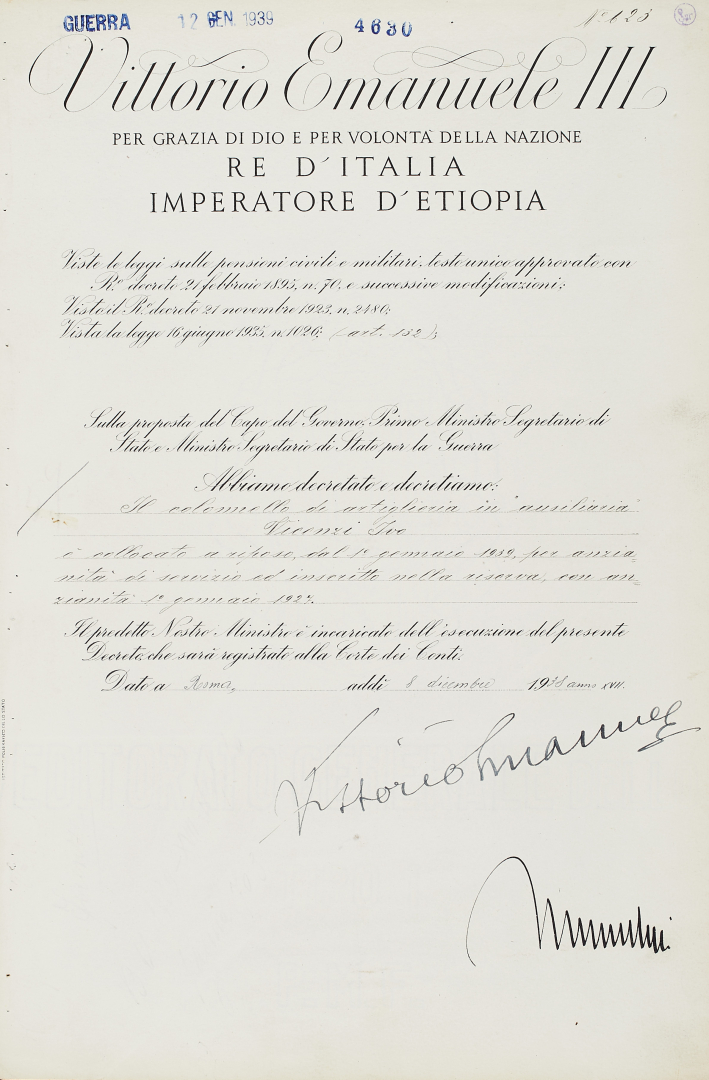 GUERRA 12 GEN. 1939 4630 N° 123
Vittorio Emanuele III
PER GRAZIA DI DIO E PER VOLONTÀ DELLA NAZIONE
RE D'ITALIA
IMPERATORE D'ETIOPIA
Viste le leggi sulle pensioni civili e militari, testo unico approvato con
R.° decreto 21 febbraio 1895, n. 70, e successive modificazioni;
Visto il R.° decreto 21 novembre 1923, n. 2480;
Vista la legge 16 giugno 1935, n. 1026; (art. 152);
Sulla proposta del Capo del Governo, Primo Ministro Segretario di
Stato e Ministro Segretario di Stato per la Guerra
Abbiamo decretato e decretiamo:
Il colonnello di artiglieria in "ausiliaria"
Vicenzi Ivo
è collocato a riposo, dal 1° gennaio 1939, per anzia=
nità di servizio ed inscritto nella riserva, con an=
zianità 1° gennaio 1927.
Il predetto Nostro Ministro è incaricato dell'esecuzione del presente
Decreto, che sarà registrato alla Corte dei Conti.
Dato a Roma, addì 8 dicembre 1938 anno XVII.
Vittorio Emanuele
Mussolini